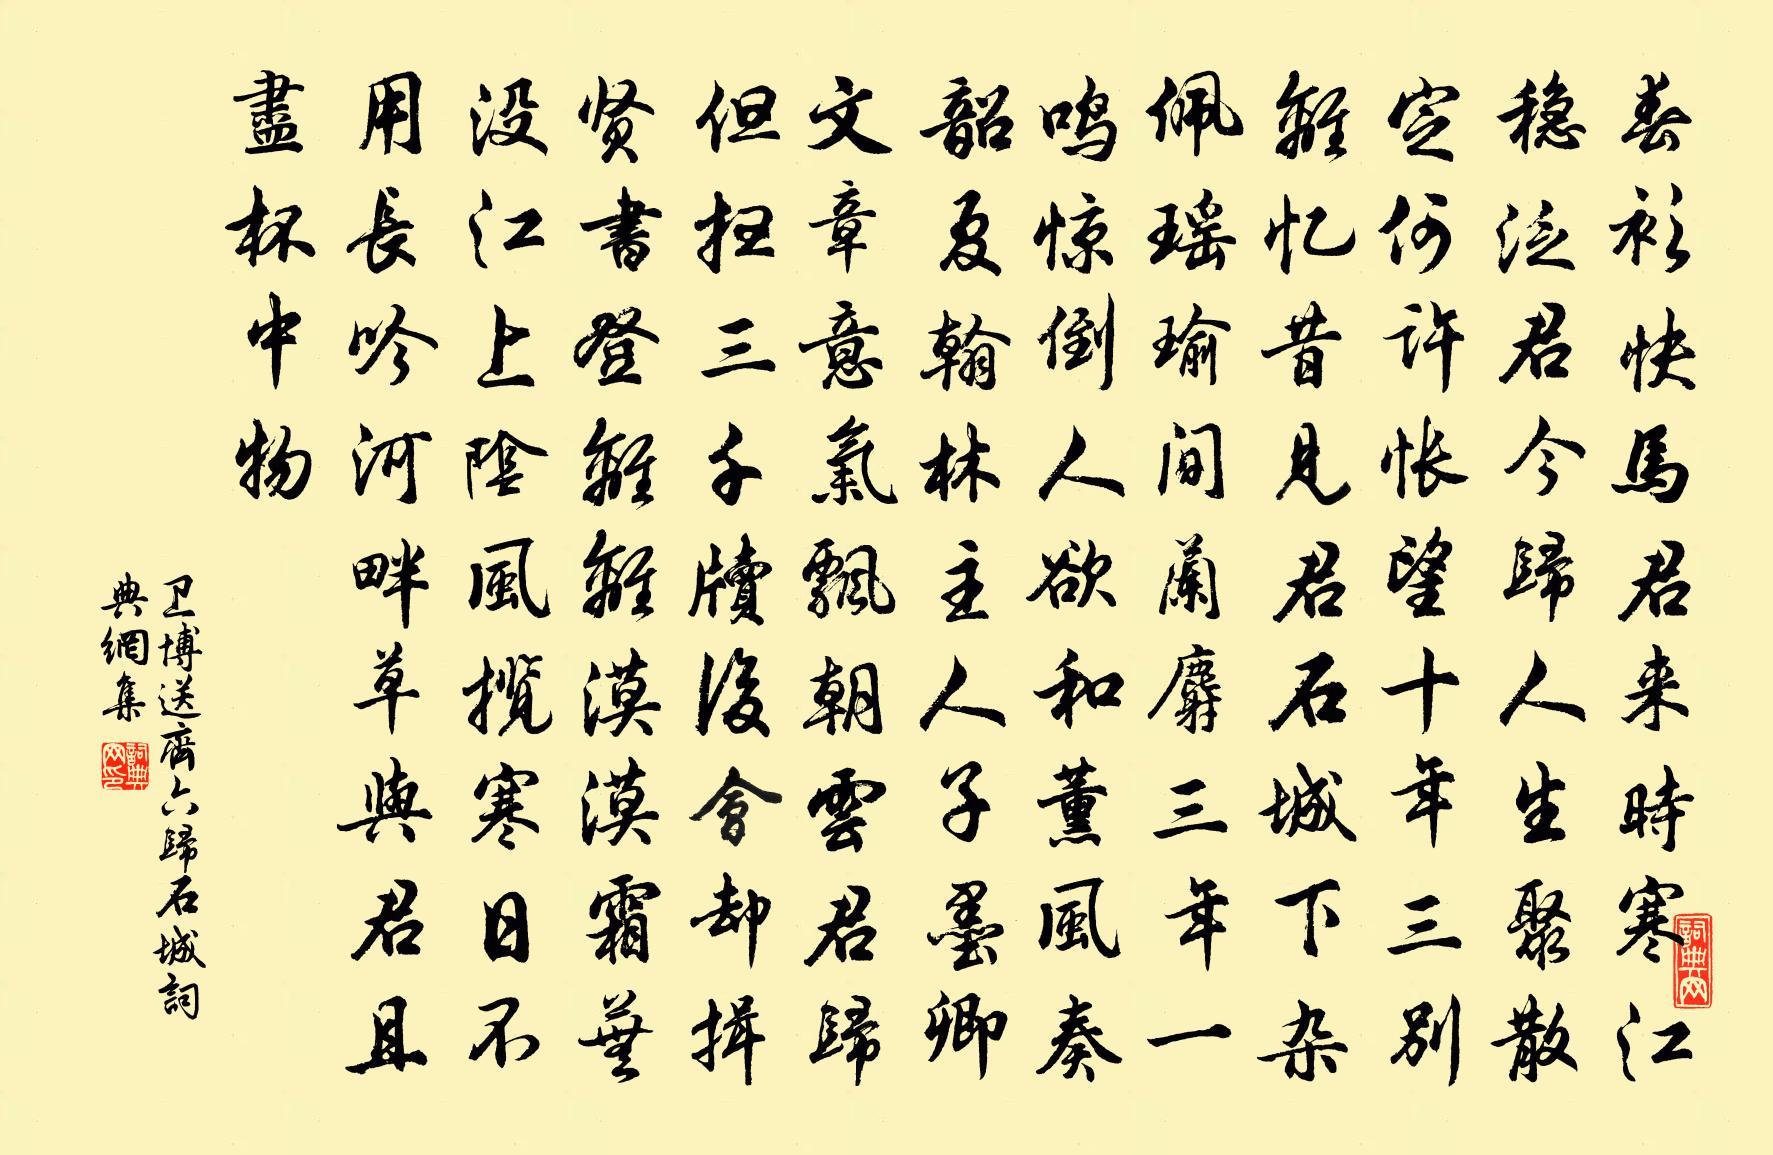 春衫快馬君来時寒江
稳泛君今歸人生聚散
定何許怅望十年三别
離忆昔見君石城下杂
佩瑶瑜间蘭麝三年一
鸣惊倒人欲和薰風奏
韶夏翰林主人子墨卿
文章意氣飄朝雲君歸
但三千牍後會却揖
贤書登離離漠漠霜蕪
没江上陰風揽寒日不
用長吟河畔草與君且
盡杯中物
卫博送齊六歸石城詞
典網集
詞典网印
詞典网